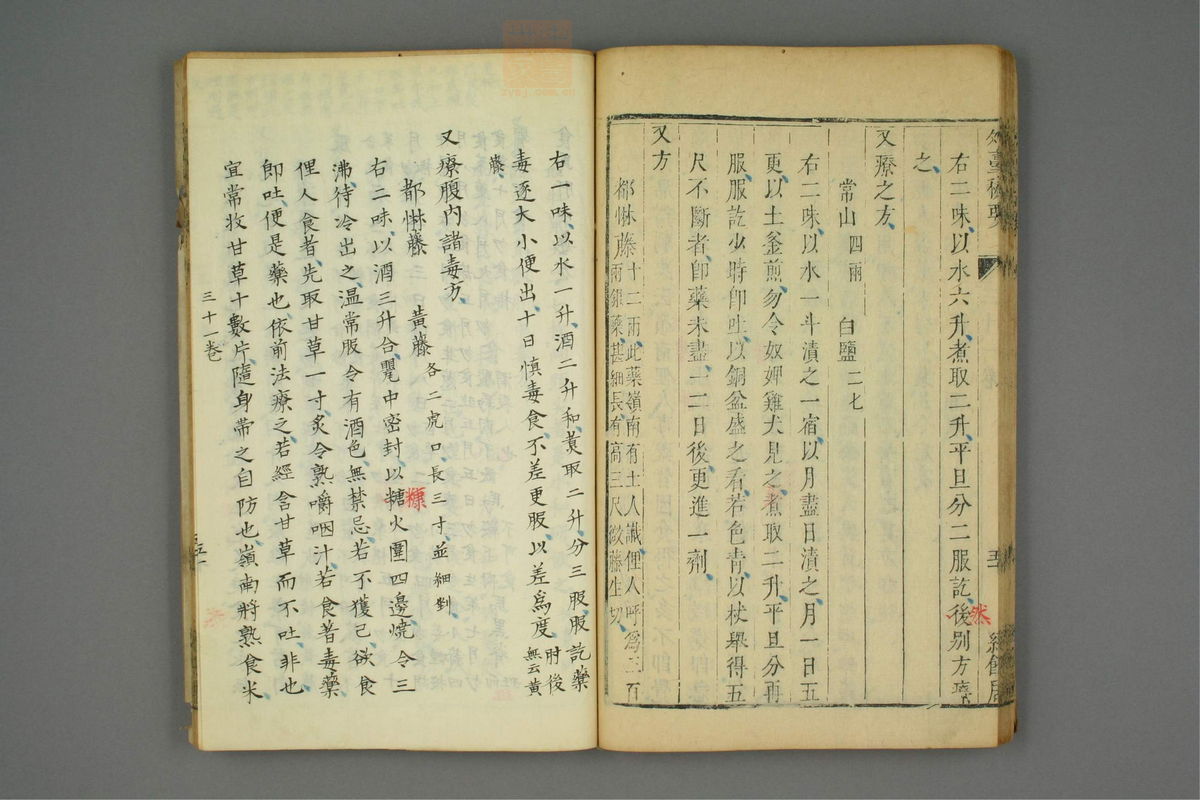 右二味以水六升煮取二升平旦分二服訖後别方療
然
之
又療之方
常山四兩 白鹽二七
右二味以水一斗漬之一宿以月盡日漬之月一日五
更以土釜煎勿令奴婢雞犬見之煮取二升平旦分再
服服訖少時即吐以銅盆盛之看若色青以杖舉得五
尺不斷者即藥未盡二日後更進一劑
又方
都惏藤十二兩此藥嶺南有土人識俚人呼為三百
兩銀藥甚細長有高三尺微藤生切
右一味以水一升酒二升和煮取二升分三服服訖藥
毒逐大小便出十日慎毒食不差更服以差為度肘後
無云黄
藤
又療腹内諸毒方
都惏藤 黄藤各二虎口長三寸並細剉
右二味以酒三升合甖中密封以糖火圍四邊燒令三
糠
沸待冷出之温常服令有酒色無禁忌若不獲已欲食
俚人食者先取甘草一寸炙令熟嚼咽汁若食著毒藥
即吐便是藥也依前法療之若經含甘草而不吐非也
宜常收甘草十數片隨身帶之自防也嶺南將熟食米
三十一卷